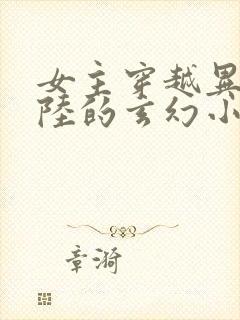 女主穿越异
陸的玄幻小
章漪